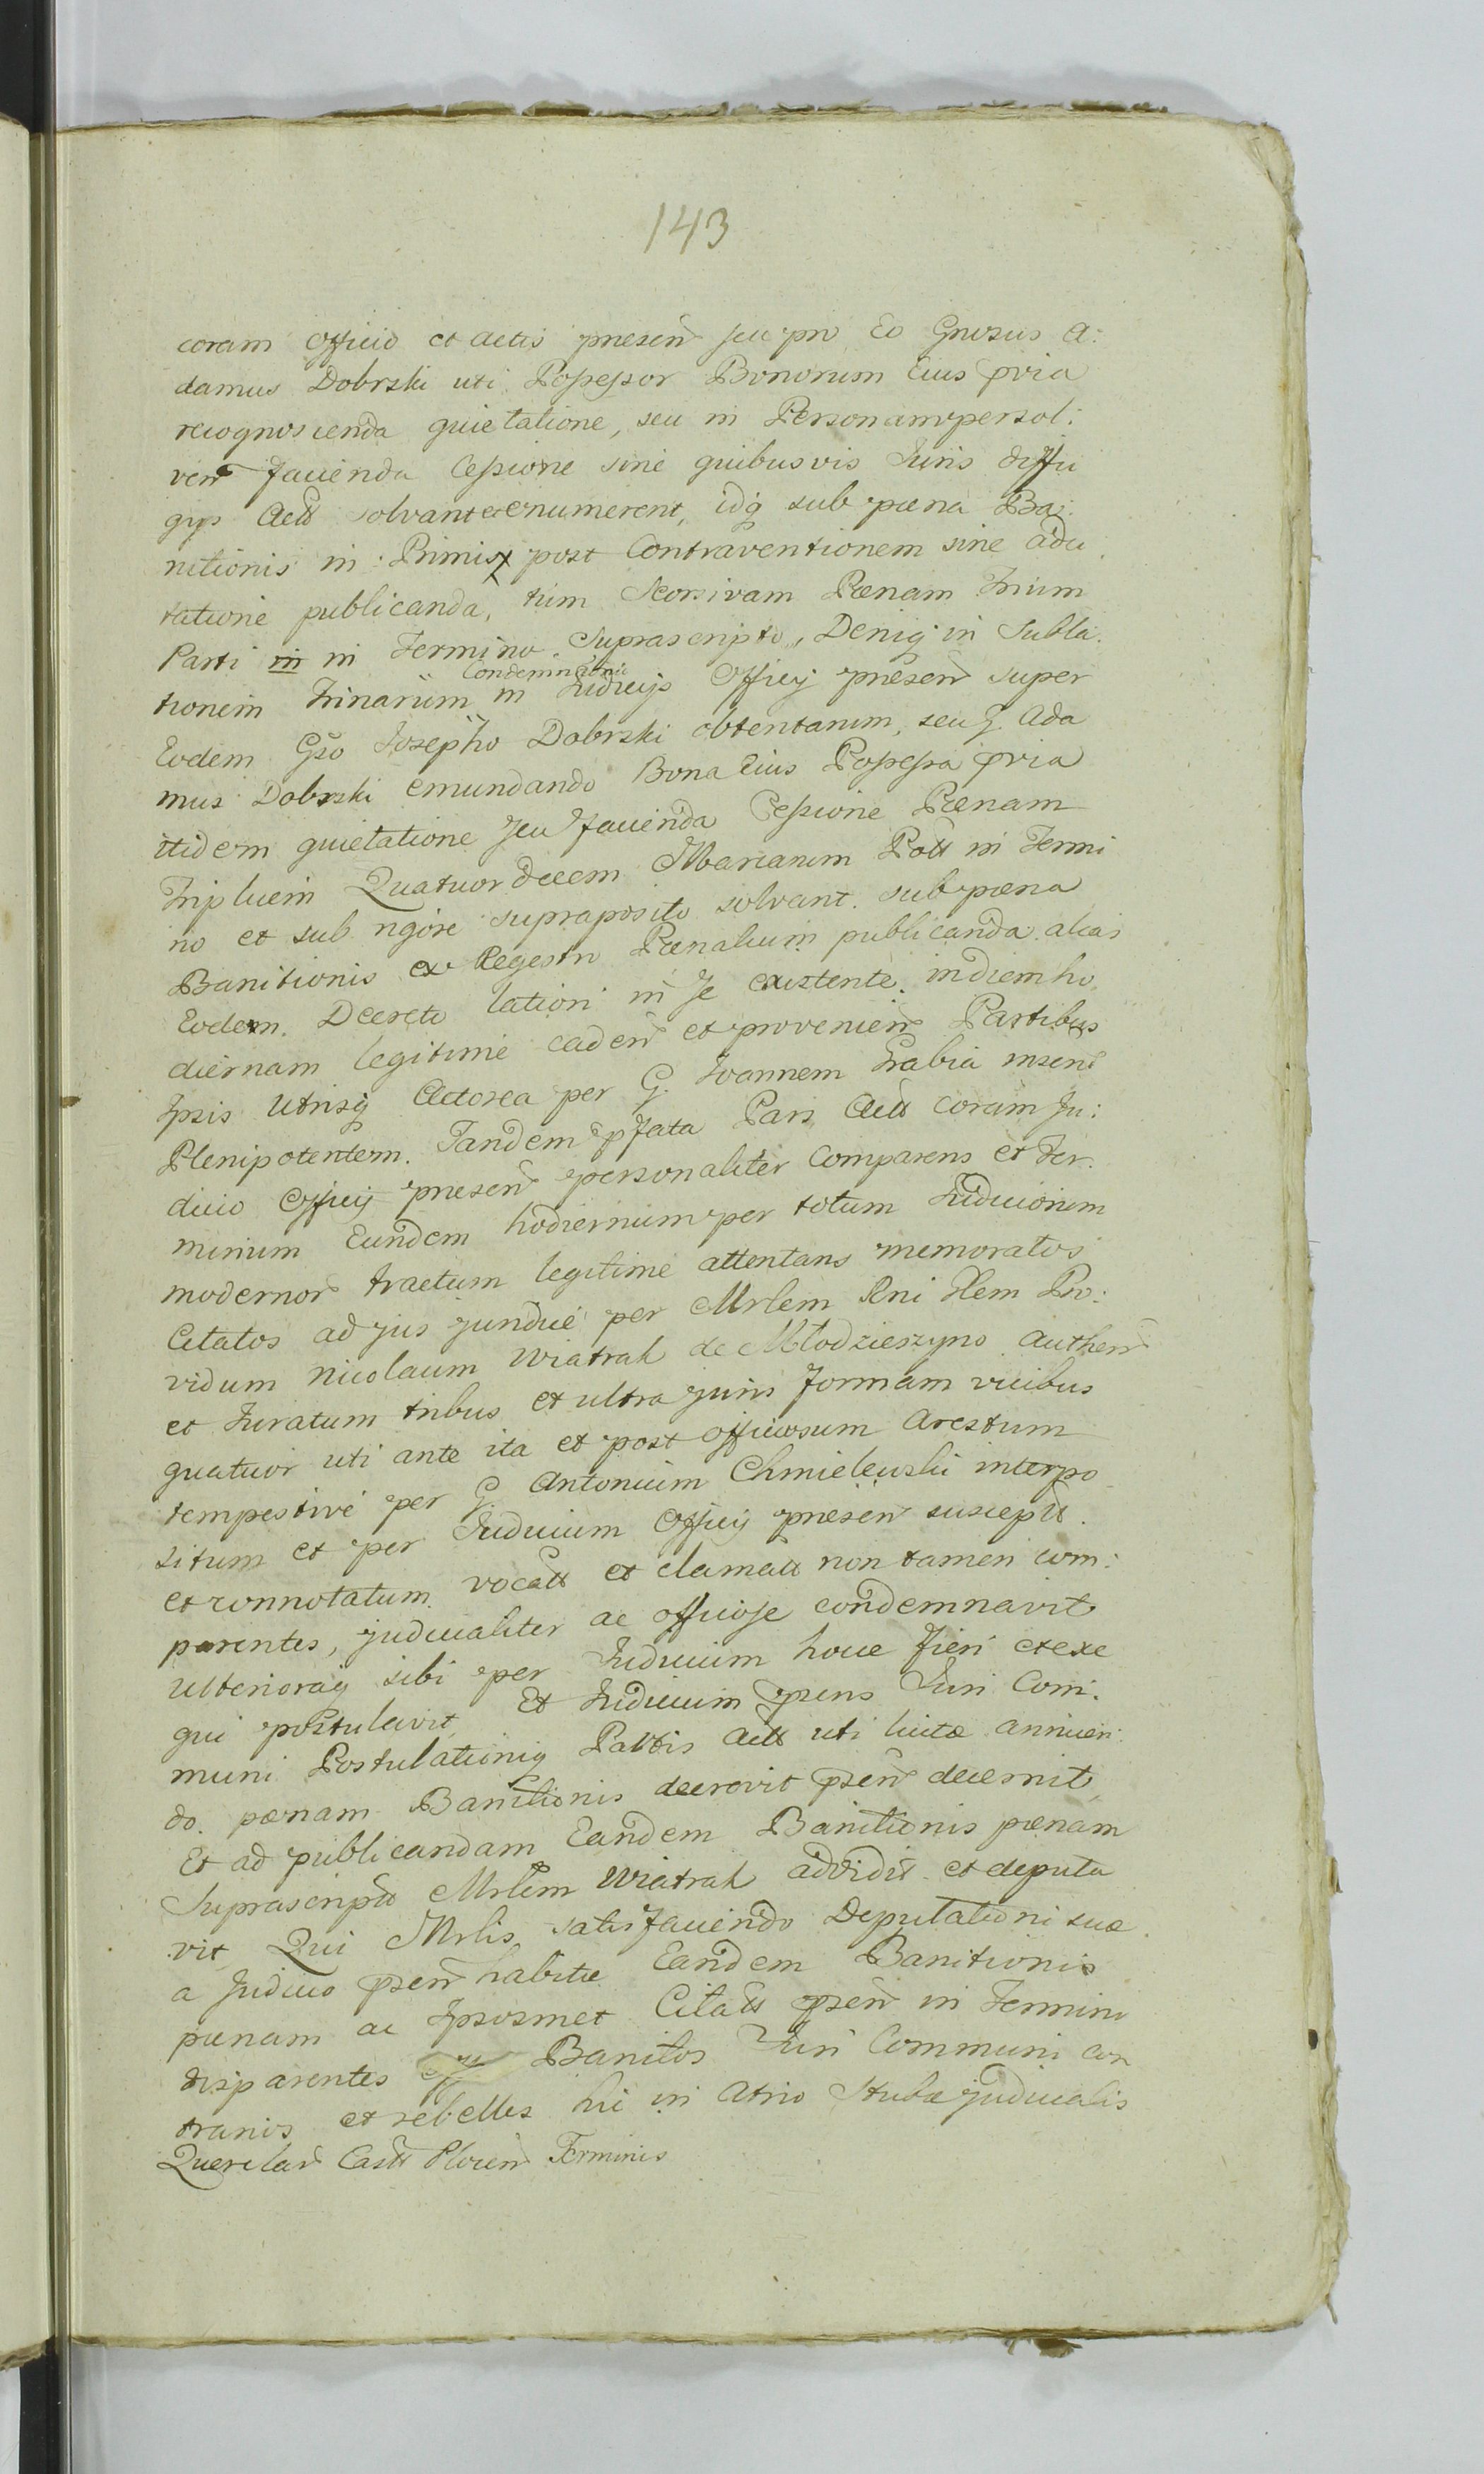 143
coram Officio et Actis præsen̄ seu pro Eo Gnrosus A:
damus Dobrski uti Possessor Bonorum Eius pria
recognoscenda quietatione, seu in Personam persol:
ven̄ facienda Cessione sine quibusvis Juris diffu
gijs Actt solvant et enumerent, idq sub pæna Ba:
nitionis in Primis post Contraventionem sine adci
tatione publicanda, tum Seorsivam Pænam Trium
Parti in in Termino Suprascripto, Deniq in Subla:
Condemnõnu
tionem Trinarum in Judicijs Officij præsen̄ super
Eodem Gso Josepho Dobrski obtentarum, seu G. Ada
mus Dobrski emundando Bona Eius Possessa pria
itidem quietatione seu facienda Cessione Pænam
Triplicem Quatuordecem Marcarum Poll in Termi
no et sub rigore supraposito solvant. sub pæna
Banitionis ex Regestro Pænalium publicanda alias
Eodem. Decreto lationi in se existente, in diem ho
diernam legitime caden̄ et provenien̄ Partibus
Ipsis Utrisq Actorea per G. Joannem Grabia inscrī
Plenipotentem. Tandem pfata Pars Actt coram Ju:
dicio Officij præsen̄ personaliter Comparens et Ter
minum Eundem hodiernum per totum Judiciorum
modernor̄ tractum legitime attentans memoratos
Citatos ad jus jundue per Mrlem Rni Plem Pro:
vidum Nicolaum Wiatrak de Młodzieszyno authen̄
et Juratum tribus et ultra juris formam vicibus
quatuor uti ante ita et post officiosum Arestum
tempestive per G. Antonium Chmielewski interpo
situm et per Judicium Officij præsen̄ susceptt.
et connotatum. vocatt et clamatt non tamen com:
parentes, judicialiter ac officiose condemnavit
Ulterioraq sibi per Judicium hocce fieri et exe
qui postulavit, Et Judicium præns Juri Com:
muni Postulationiq Partis Actt uti licitæ annuen:
do. pænam Banitionis decrevit psen̄ decernit,
Et ad publicandam Eandem Banitionis pænam
Suprascriptt Mrlem Wiatrak addidit et deputa
vit, Qui Mrlis satisfaciendo Deputationi suæ
a Judicio psen̄ habitæ Eandem Banitionis
pænam ac Ipsosmet Citatt psen̄ in Termino
disparentes Banitos Juri Communi con
trarios et rebelles hic in Atrio Stubæ judicialis
Querelar̄ Castr Plocen̄ Terminis